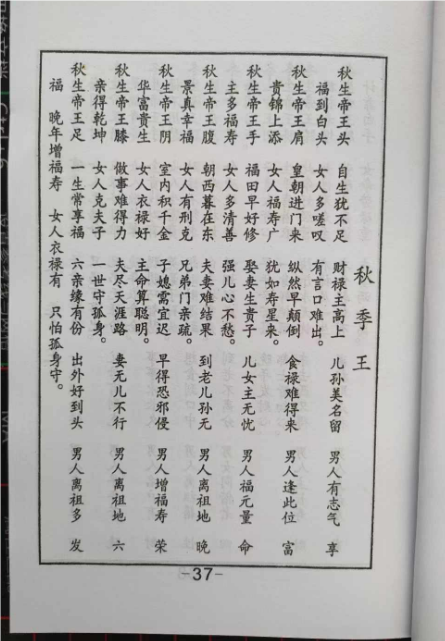 秋季王
秋生帝王头 自生犹不足 财禄主高上 儿孙美名留 男人有志气 享
福到白头 女人多嗟叹 有言口难出。
秋生帝王肩 皇朝进门来 纵然早颠倒 食禄难得来 男人逢此位 富
贵锦上添 女人福寿广 犹如寿星来。
秋生帝王手 福田早好修 娶妻生贵子 儿女主无忧 男人福元量 命
主多福寿 女人多清善 强儿心不愁。
秋生帝王腹 朝西暮在东 夫妻难结果 到老儿孙无 男人离祖地 晚
景真幸福 女人有刑克 兄弟门亲疏。
秋生帝王阴 室内积千金 子媳需宜迟 早得恐邪侵 男人增福寿 荣
华富贵生 女人衣禄好 主命算聪明。
秋生帝王膝 做事难得力 夫尽天涯路 妻无儿不行 男人离祖地 六
亲得乾坤 女人克夫子 一世守孤身。
秋生帝王足 一生常享福 六亲缘有份 出外好到头 男人离祖多 发
福 晚年增福寿 女人衣禄有 只怕孤身守。
-37-